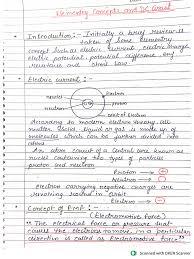 Elementary Concepts and DC Circuit
Introduction :- Initially a brief review is
taken of some elementary
concept such as electric current, electric
potential, potential difference, emf
resistance and ohm's law.
Electric current :-
nucleus
electron
orbit of electron
According to modern electron theory, all
matter solid, liquid or gas is made up of
molecules which can be further divided into
atom.
An atom consist of a central core known as
nuclei containing the types of particles
proton and neutron.
Proton → +
Electron → -
Electron carrying negative charges are
revolving around in orbit
Concept of Emf :-
(Electromotive force)
"The electrical force or pressure that
causes the electrons to move in a particular
direction is called as Electromotive force"
Scanned with OKEN Scanner